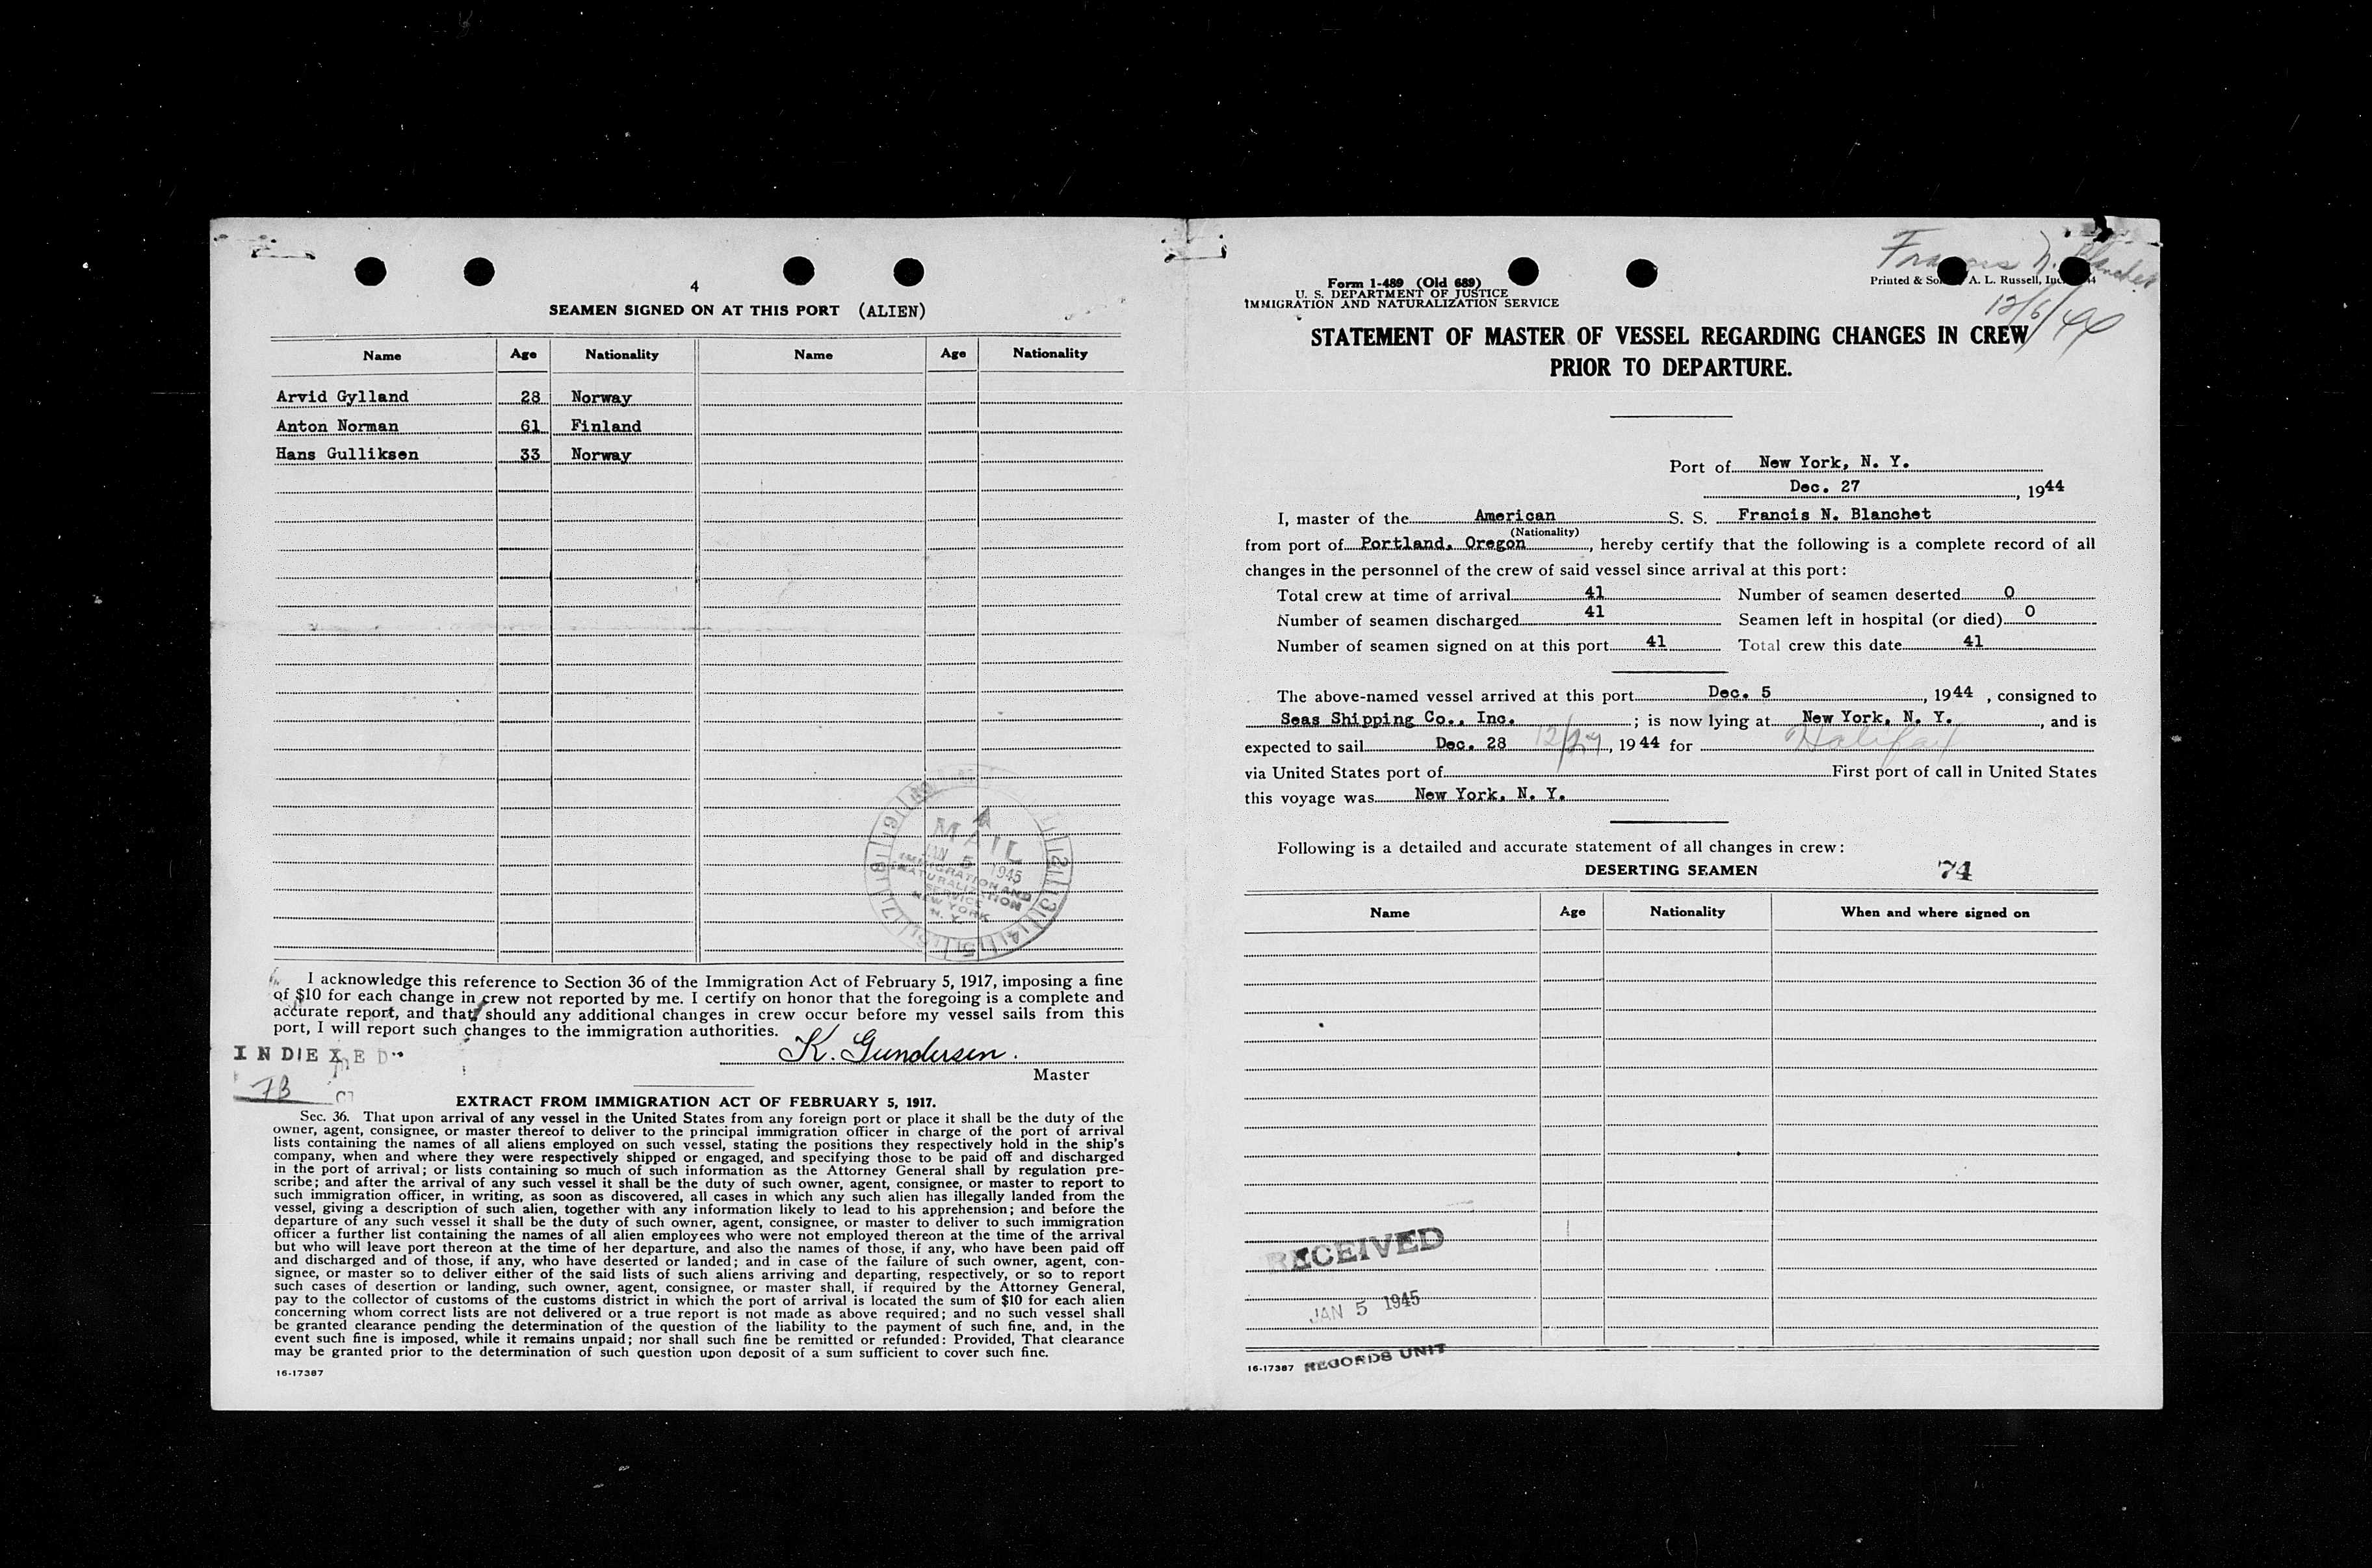 4
SEAMEN SIGNED ON AT THIS PORT (ALIEN)
Name Age Nationality Name Age Nationality
Arvid Gylland 28 Norway
Anton Norman 61 Finland
Hans Gulliksen 33 Norway
MAIL
JAN 5 1945
IMMIGRATION AND
NATURALIZATION
SERVICE
NEW YORK
N. Y.
I acknowledge this reference to Section 36 of the Immigration Act of February 5, 1917, imposing a fine
of $10 for each change in crew not reported by me. I certify on honor that the foregoing is a complete and
accurate report, and that should any additional changes in crew occur before my vessel sails from this
port, I will report such changes to the immigration authorities.
INDEXED
K. Gundersen.
Master
EXTRACT FROM IMMIGRATION ACT OF FEBRUARY 5, 1917.
Sec. 36. That upon arrival of any vessel in the United States from any foreign port or place it shall be the duty of the
owner, agent, consignee, or master thereof to deliver to the principal immigration officer in charge of the port of arrival
lists containing the names of all aliens employed on such vessel, stating the positions they respectively hold in the ship's
company, when and where they were respectively shipped or engaged, and specifying those to be paid off and discharged
in the port of arrival; or lists containing so much of such information as the Attorney General shall by regulation pre-
scribe; and after the arrival of any such vessel it shall be the duty of such owner, agent, consignee, or master to report to
such immigration officer, in writing, as soon as discovered, all cases in which any such alien has illegally landed from the
vessel, giving a description of such alien, together with any information likely to lead to his apprehension; and before the
departure of any such vessel it shall be the duty of such owner, agent, consignee, or master to deliver to such immigration
officer a further list containing the names of all alien employees who were not employed thereon at the time of the arrival
but who will leave port thereon at the time of her departure, and also the names of those, if any, who have been paid off
and discharged and of those, if any, who have deserted or landed; and in case of the failure of such owner, agent, con-
signee, or master so to deliver either of the said lists of such aliens arriving and departing, respectively, or so to report
such cases of desertion or landing, such owner, agent, consignee, or master shall, if required by the Attorney General,
pay to the collector of customs of the customs district in which the port of arrival is located the sum of $10 for each alien
concerning whom correct lists are not delivered or a true report is not made as above required; and no such vessel shall
be granted clearance pending the determination of the question of the liability to the payment of such fine, and, in the
event such fine is imposed, while it remains unpaid; nor shall such fine be remitted or refunded: Provided, That clearance
may be granted prior to the determination of such question upon deposit of a sum sufficient to cover such fine.
16-17387
Francis N. Blanchet
Form 1-489 (Old 689)
U. S. DEPARTMENT OF JUSTICE
IMMIGRATION AND NATURALIZATION SERVICE
Printed & A. L. Russell,
12/6/44
STATEMENT OF MASTER OF VESSEL REGARDING CHANGES IN CREW
PRIOR TO DEPARTURE.
Port of New York, N. Y.
Dec. 27, 1944
I, master of the American S. S. Francis N. Blanchet
(Nationality)
from port of Portland, Oregon, hereby certify that the following is a complete record of all
changes in the personnel of the crew of said vessel since arrival at this port:
Total crew at time of arrival 41 Number of seamen deserted 0
Number of seamen discharged 41 Seamen left in hospital (or died) 0
Number of seamen signed on at this port 41 Total crew this date 41
The above-named vessel arrived at this port Dec. 5, 1944, consigned to
Seas Shipping Co., Inc.; is now lying at New York, N. Y., and is
expected to sail Dec. 28 12/29, 1944 for Halifax
via United States port of First port of call in United States
this voyage was New York, N. Y.
Following is a detailed and accurate statement of all changes in crew:
DESERTING SEAMEN 74
Name Age Nationality When and where signed on
RECEIVED
JAN 5 1945
RECORDS UNIT
16-17387